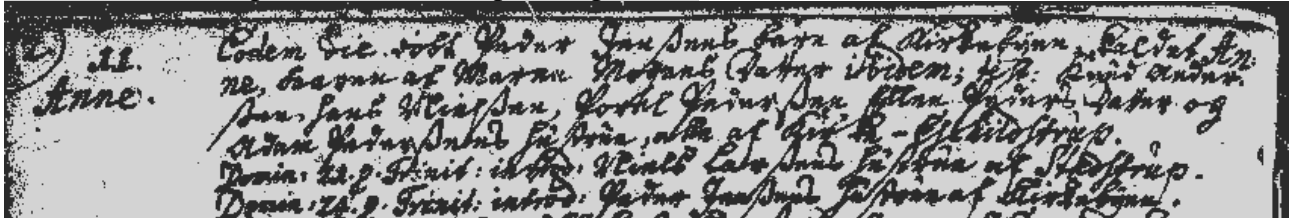 11. Eodem die döbt Peder Jenssens barn af Kirkebyen, kaldet An-
Anne. ne, baaren af Maren Mogens Datter ibidem; test: Knud Ander-
sen, Hans Nielssen, Poul Pederssen Ellen Peders Datter og
Adam Pederssens hustrue, alle af Kirke-Eskildstrup.
Domin: 22. p. Trinit: introd: Niels Larssens hustrue af Stadstrup.
Domin: 24. p. Trinit: introd: Peder Jenssens hustrue af Kirkebyen.